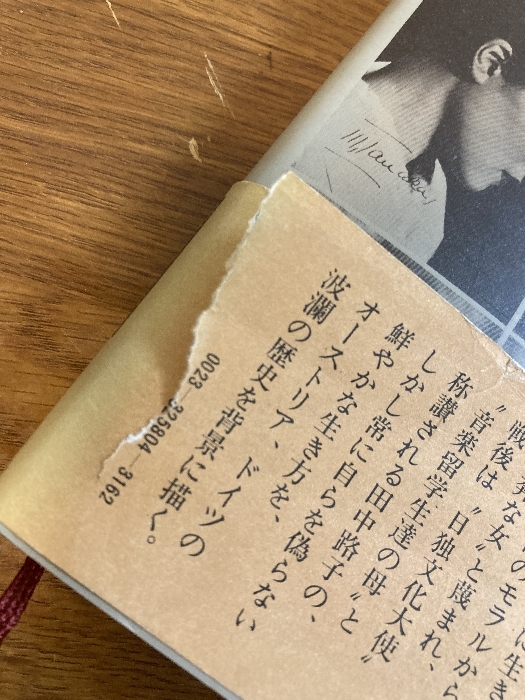 に生き
奔な女〟のモラルから
〝戦後は〟と蔑まれ、
音楽留学生達の母〟と
称讃される田中路子の、
しかし常に自らを偽らない
鮮やかな生き方を、
オーストリア、ドイツの
波瀾の歴史を背景に描く。
0023―225804―3162